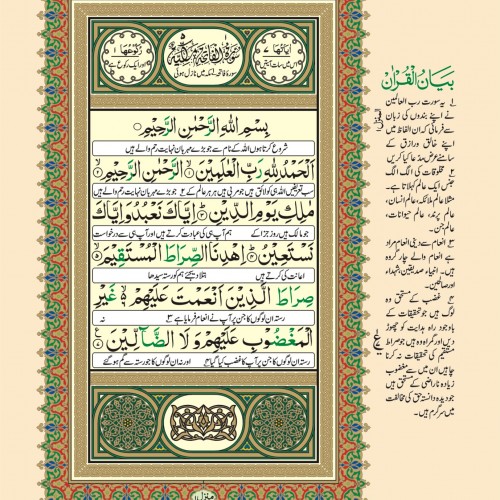 اٰيَاتُهَا ٧
سُوْرَةُ الْفَاتِحَةِ مَكِّيَّةٌ
رُكُوْعُهَا ١
اس میں سات آیتیں
سورۃ فاتحہ مکہ میں نازل ہوئی
اور ایک رکوع ہے
بِسْمِ اللهِ الرَّحْمٰنِ الرَّحِيْمِ
شروع کرتا ہوں اللہ کے نام سے جو بڑے مہربان نہایت رحم والے ہیں
اَلْحَمْدُ لِلّٰهِ رَبِّ الْعٰلَمِيْنَ ۝ الرَّحْمٰنِ الرَّحِيْمِ ۝
سب تعریفیں اللہ ہی کو لائق ہیں جو مربی ہیں ہر ہر عالم کے جو بڑے مہربان نہایت رحم والے ہیں
مٰلِكِ يَوْمِ الدِّيْنِ ۝ اِيَّاكَ نَعْبُدُ وَاِيَّاكَ
جو مالک ہیں روز جزا کے ہم آپ ہی کی عبادت کرتے ہیں اور آپ ہی سے درخواست
نَسْتَعِيْنُ ۝ اِهْدِنَا الصِّرَاطَ الْمُسْتَقِيْمَ ۝
اعانت کی کرتے ہیں بتلا دیجئے ہم کو رستہ سیدھا
صِرَاطَ الَّذِيْنَ اَنْعَمْتَ عَلَيْهِمْ ۙ غَيْرِ
رستہ ان لوگوں کا جن پر آپ نے انعام فرمایا ہے نہ
الْمَغْضُوْبِ عَلَيْهِمْ وَلَا الضَّآلِّيْنَ ۝
رستہ ان لوگوں کا جن پر آپ کا غضب کیا گیا اور نہ ان لوگوں کا جو رستہ سے گم ہو گئے
بیان القرآن
یہ سورت رب العالمین
نے اپنے بندوں کی زبان
سے فرمائی کہ ان الفاظ میں
اپنے خالق و رازق کے
سامنے عرض مدعا کیا کریں
مخلوقات کی الگ الگ
جنس ایک عالم کہلاتا ہے۔
مثلا عالم ملائکہ، عالم انسان،
عالم پرند، عالم حیوانات،
عالم جن۔
انعام سے دینی انعام مراد
ہے انعام والے چار گروہ
ہیں۔ انبیاء صدیقین شہداء
اور صالحین۔
غضب کے مستحق وہ
لوگ ہیں جو تحقیقات کے
باوجود راہ ہدایت کو چھوڑ
دیں اور گمراہ وہ ہیں جو صراط
مستقیم کی تحقیقات نہ کرنا
چاہیں ان میں سے مغضوب
زیادہ ناراضی کے مستحق ہیں
جو دیدہ دانستہ حق کی مخالفت
میں سرگرم ہیں۔
منزل ۱